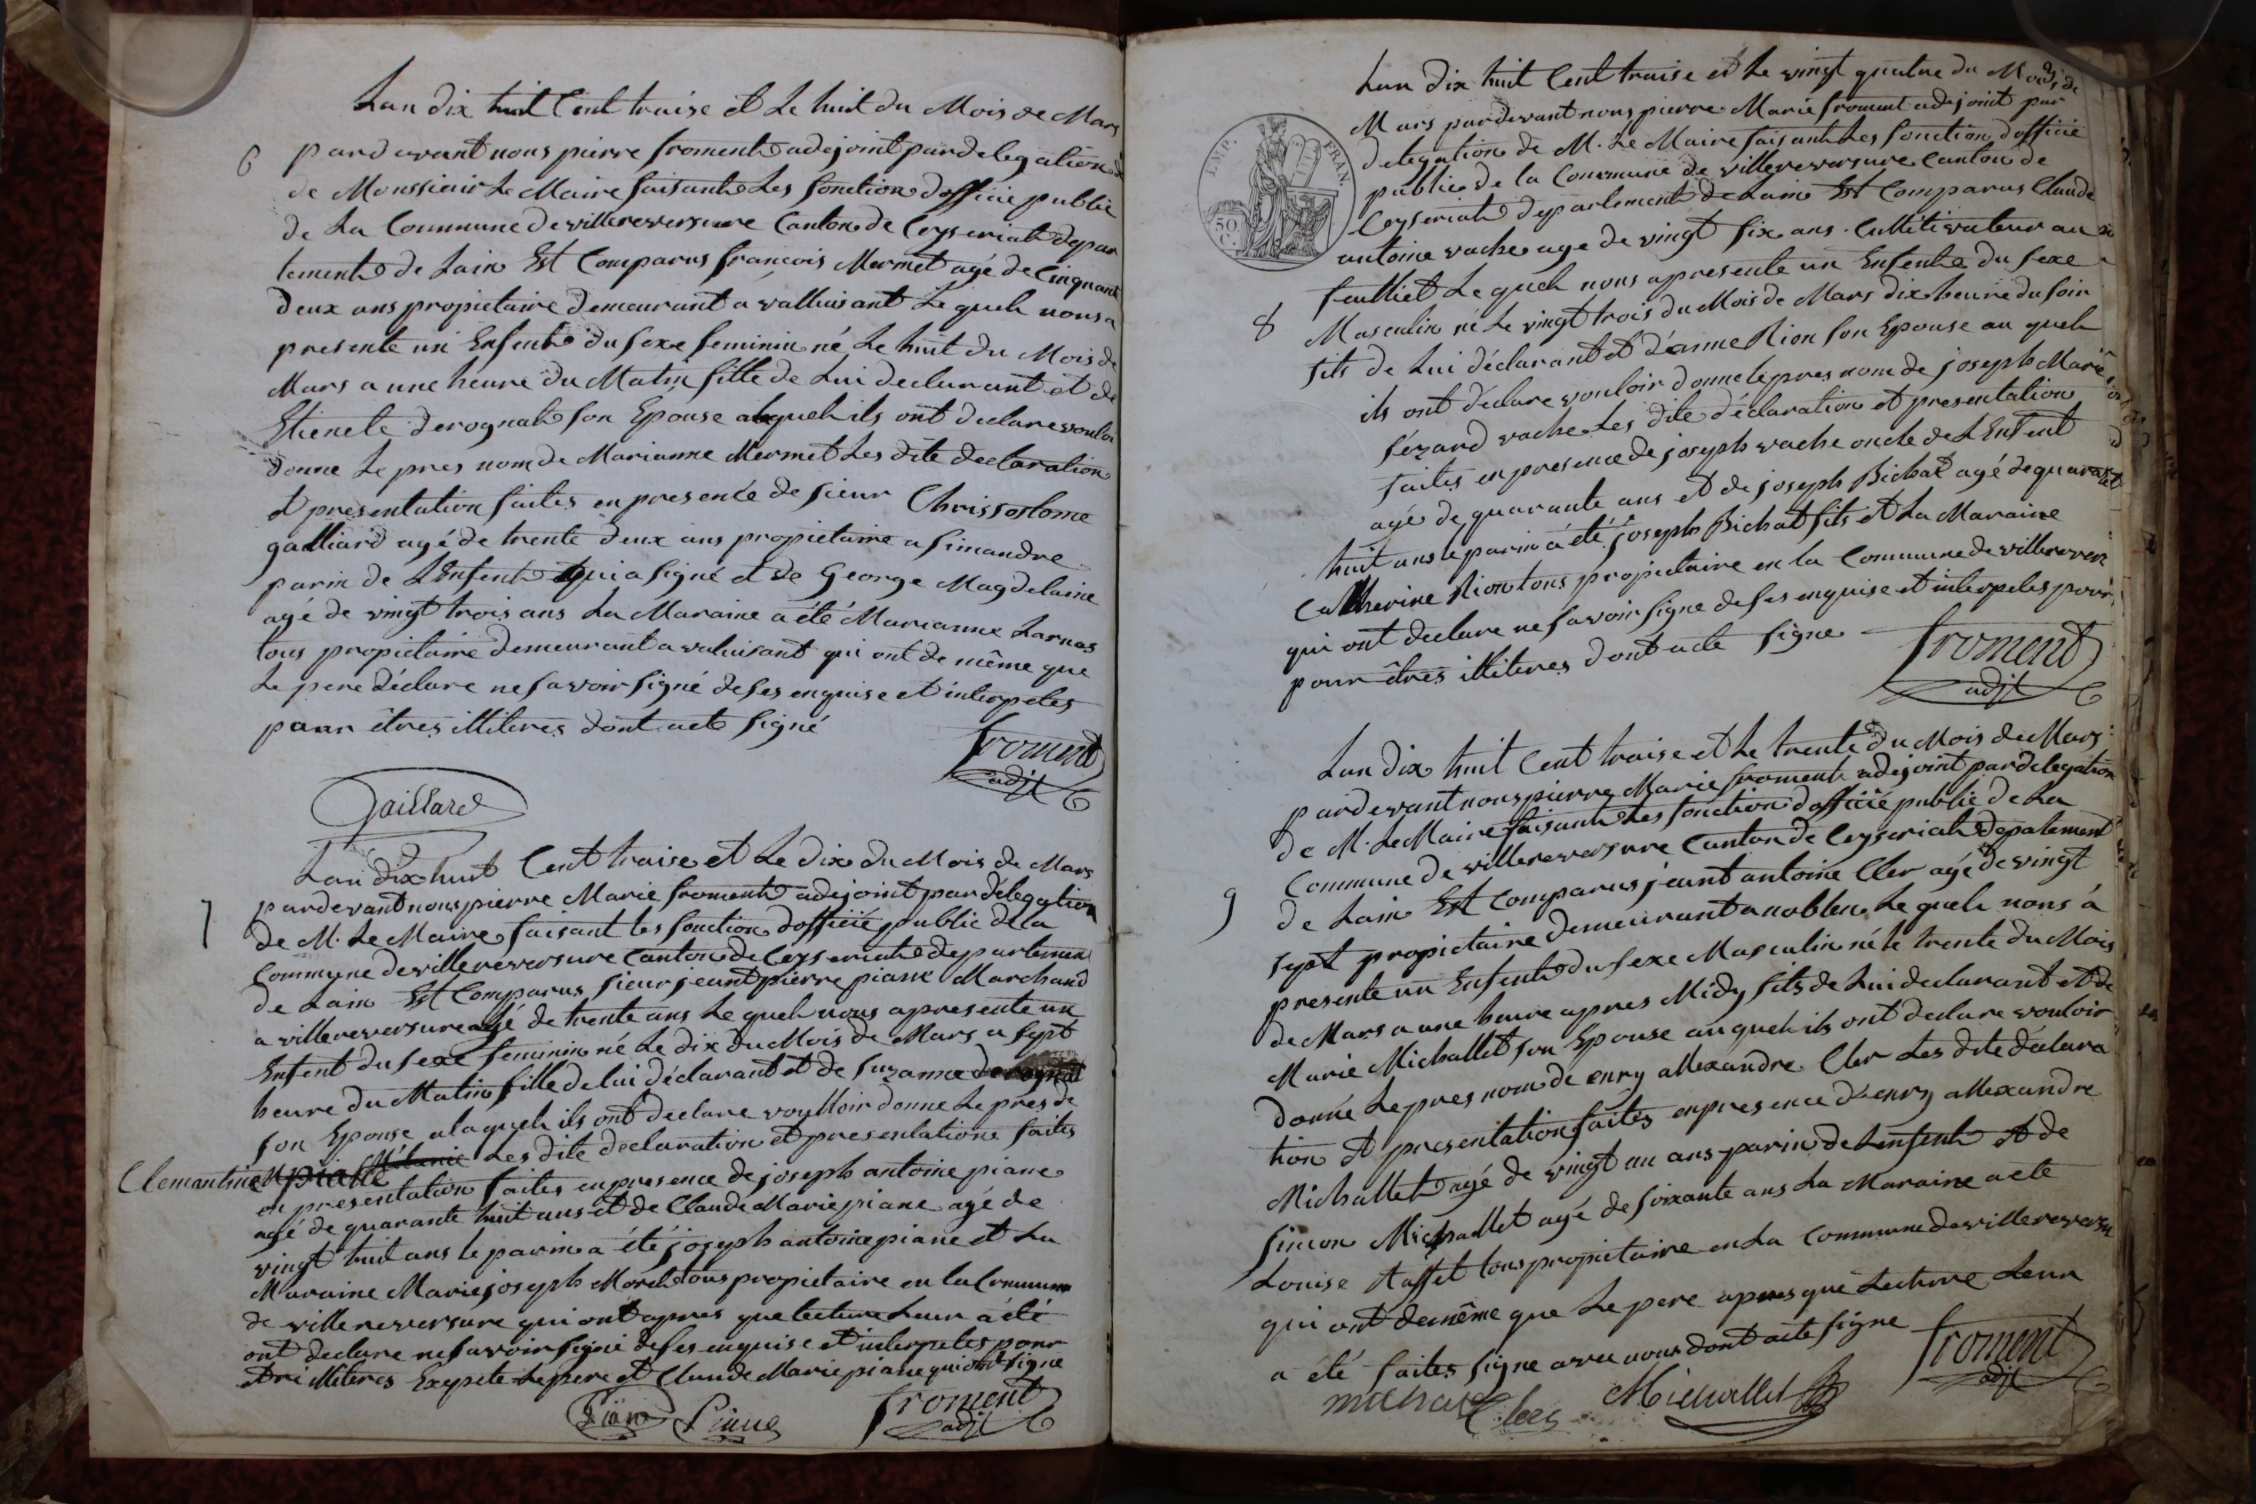 Lan dix huit Cent traise et Le huit du Mois de Mars
6
pardevant nous pierre froment adejoint par delegation
de Monssieur Le Maire faisant Les fonction dofficié public
de La Commune de villereversure Canton de Ceyseriat depar
tement de Lain Est Comparus francois Mermet agé de Cinquante
deux ans propietaire demeurant a valluisant Le quel nous a
presenté un Enfent du sexe feminin né Le huit du Mois de
Mars a une heure du Matin fille de Lui declarant et de
Etienete derognat son Epouse alaquel ils ont declare vouloir
donne Le pres nom de Marianne Mermet Les dite declaration
et presentation faites en presence de sieur Chrissostome
galliard agé de trente deux ans propietaire a simandre
parin de LEnfent qui a signé et de George Magdelaine
agé de vingt trois ans La Maraine a été Marianne Larnas
tous propietaire demeurant a valuisant qui ont de même que
Le pere déclare ne savoir signé de ses enquise et interpeles
pour êtres illiteres dont acte signé
froment
adjt
Gaillard
Lan dix huit Cent traise et Le dix du Mois de Mars
7
pardevant nous pierre Marie froment adejoint par délegation
de M. Le Maire faisant les fonction dofficié public de la
Commune de villereversure Canton de Ceyseriat departement
de Lain Est Comparus sieur jeant pierre piane Marchand
a villereversure agé de trente ans Le quel nous a presente un
Enfent du sexe feminin né Le dix du Mois de Mars a sept
heure du Matin fille de lui déclarant et de Suzanne
son Epouse alaquel ils ont declare voulloir donne Le pres de
Clemantine piane Les dite declaration et presentation faites
en presentation faites en presence de joseph antoine piane
agé de quarante huit ans et de Claude Marie piane agé de
vingt huit ans le parin a été joseph antoine piane et La
Maraine Marie joseph Morel tous propietaire en la Commune
de villereversure qui ont apres que lecture Leur a été
ont declare ne savoir signé de ses enquise et interpeles pour
etre illiteres Exepete Le pere et Claude Marie piane qui ont signe
Piane Piane froment
adjt
Lan dix huit Cent traise et Le vingt quatre du Mois de
IMP. FRAN.
50 C.
Mars pardevant nous pierre Marie froment adejoint par
delegation de M. Le Maire faisant Les fonction dofficié
public de la Commune de villereversure Canton de
Ceyseriat departement de Lain Est Comparus Claude
antoine vache age de vingt six ans Cultivateur au
feulliet Le quel nous a presente un Enfent du sexe
8
Masculin né Le vingt trois du Mois de Mars dix heure du soir
fils de Lui déclarant et d'anne Rion son Epouse au quel
ils ont déclare vouloir donne le pres nom de joseph Marie
fézard vache Les dite déclaration et presentation
faites en presence de joseph vache oncle de LEnfent
agé de quarante ans et de joseph Bichat agé de quarante
huit ans le parin a été joseph Bichat fils et La Maraine
Catherine Rion tous propietaire en la Commune de villerever
qui ont declare ne savoir signe de ses enquise et interpeles pour
pour êtres illiteres dont acte signe
froment
adjt
Lan dix huit Cent traise et Le trente du Mois de Mars
pardevant nous pierre Marie froment adejoint par delegation
de M. Le Maire faisant Les fonction dofficié public de La
Commune de villereversure Canton de Ceyseriat depatement
9
de Lain Est Comparus jeant antoine Cler agé de vingt
sept propietaire demeurant a noblen Le quel nous à
presente un Enfent du sexe Masculin né le trente du Mois
de Mars a une heure apres Midy fils de Lui declarant et de
Marie Michallet son Epouse au quel ils ont declare vouloir
donné Le pres nom de enry allexandre Cler Les dite déclara
tion et presentation faites en presence d'enry allexandre
Michallet agé de vingt un ans parin de Lenfent et de
simon Michallet agé de soixante ans La Maraine a ete
Louise Raffet tous propietaire en La Commune de villereversu
qui ont de même que Le pere apres que Lecture Leur
a été faites signe avec nous dont acte signe
froment
adjt
michalet Cler Michallet